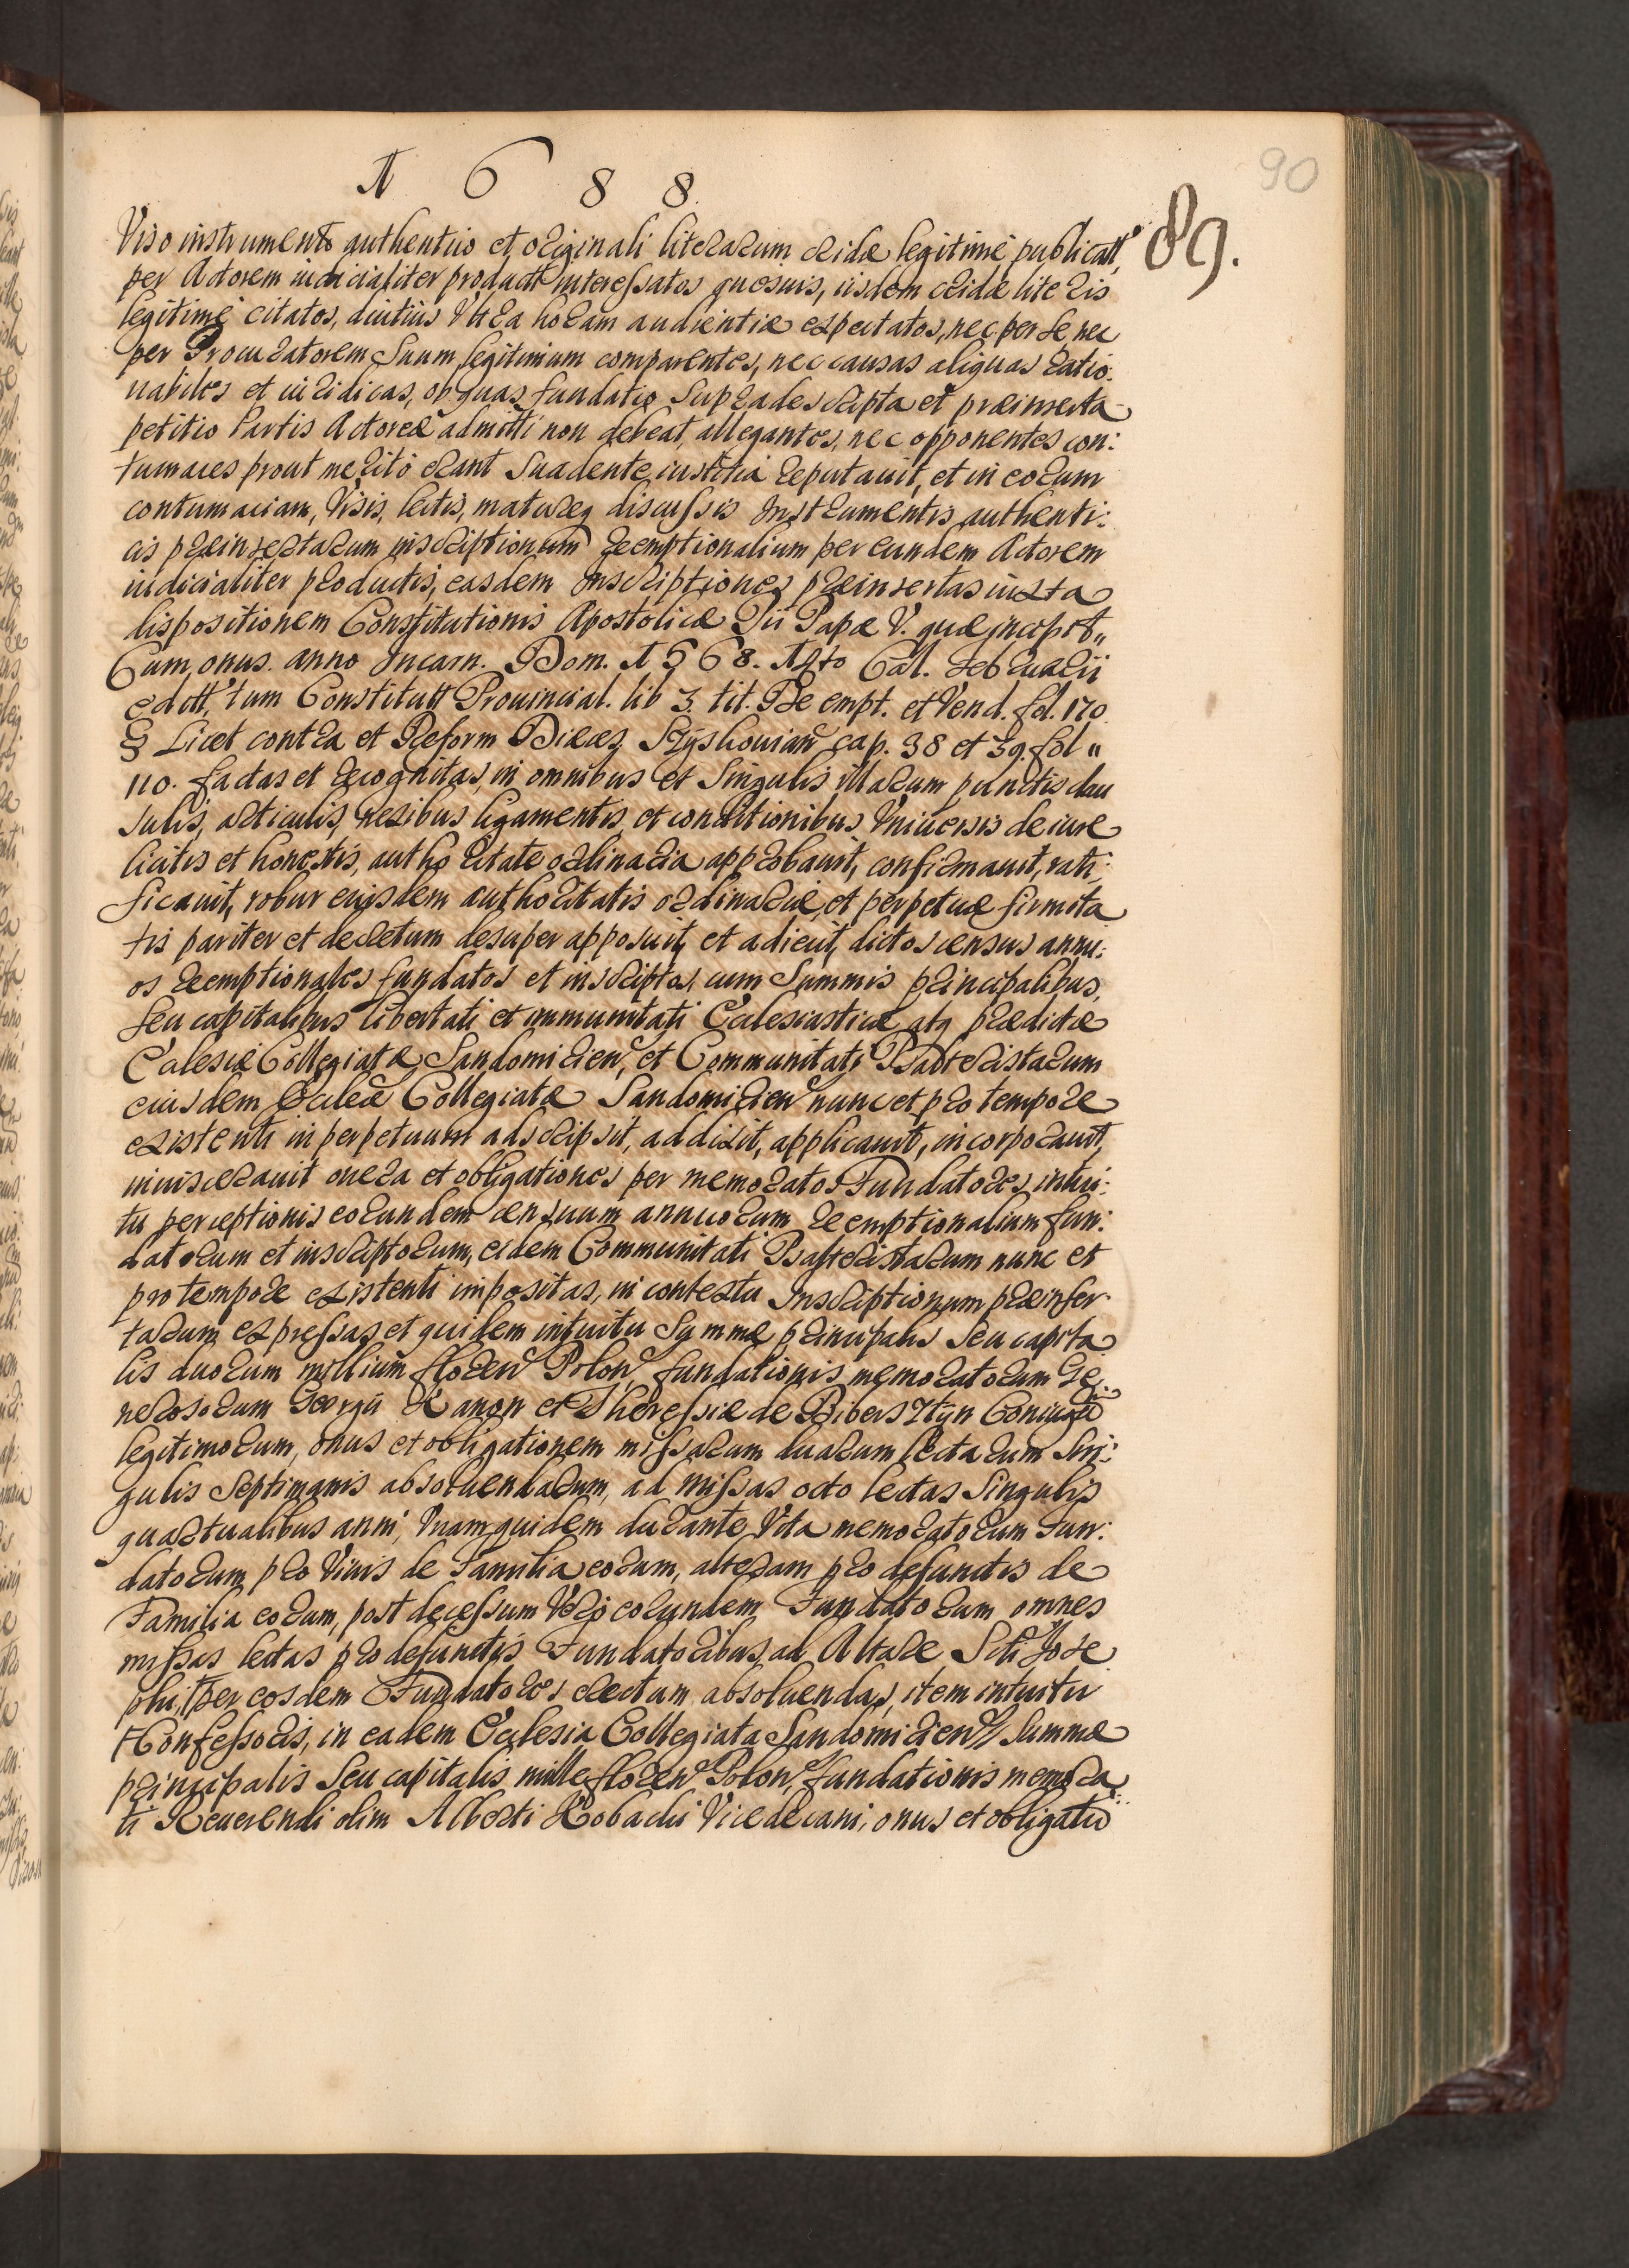 1688.
90
89.
Viso instrumento authentico et originali literarum cridæ legitimè publicatt,
per Actorem iudicialiter productt interessatos quosuis, iisdem cridæ literis
legitimè citatos, diutius Vltra horam audientiæ expectatos, nec per se, nec
per Procuratorem Suum legitimum comparentes, nec causas aliquas ratio:
nabiles et iuridicas, ob quas fundatio Supradescripta et præinserta
petitio Partis Actoreæ admitti non debeat, allegantes, nec opponentes con:
tumaces prout meritò erant Suadente iustitia reputauit, et in eorum
contumaciam, Visis, lectis, matureq discussis Instrumentis authenti:
cis præinsertarum inscriptionum reemptionalium per eundem Actorem
iudicialiter productis, easdem Inscriptiones præinsertas iuxta
dispositionem Constitutionis Apostolicæ Pii Papæ V. quæ incipit„
Cum onus. anno Incarn. Dom. 1568. 14to Cal. Februarii
editt, tum Constitutt Prouincial. lib 3. tit. De empt. et Vend. fol. 170.
§ Licet contra et Reform Diæces Szyskouian cap. 38 et 39. fol„
110. factas et recognitas, in omnibus et Singulis illarum punctis clau
sulis, articulis, nexibus ligamentis, et conditionibus Vniuersis de iure
licitis et honestis, authoritate ordinaria approbauit, confirmauit, rati:
ficauit, robur eiusdem authoritatis ordinariæ, et perpetuæ firmita
tis pariter et decretum desuper apposuit, et adiecit, dictos census annu:
os reemptionales fundatos et inscriptos, cum Summis principalibus,
seu capitalibus libertati et immunitati Ecclesiasticæ atq prædictæ
Ecclesiæ Collegiatæ Sandomirien, et Communitati Psalteristarum
eiusdem Eccleæ Collegiatæ Sandomirien nunc et pro tempore
existenti in perpetuum adscripsit, addixit, applicauit, incorporauit,
inuiscerauit onera et obligationes per memoratos Fundatores, intui:
tu perceptionis eorundem censuum annuorum reemptionalium fun:
datorum et inscriptorum, eidem Communitati Psalteristarum nunc et
pro tempore existenti impositas, in contextu Inscriptionum præinser
tarum expressas, et quidem intuitu Summæ principalis Seu capita
lis duorum millium floren Polon, fundationis memoratorum Ge
nerosorum Georgii Kanon et Theressiæ de Bibersztyn Coniugū
legitimorum, onus et obligationem missarum duarum lectarum Sin:
gulis Septimanis absoluendarum, ad missas octo lectas Singulis
quartualibus anni, Vnam quidem durante Vita memoratorum Fun:
datorum pro Viuis de Familia eorum, alteram pro defunctis de
Familia eorum, post decessum Verò eorundem Fundatorum omnes
missas lectas pro defunctis Fundatoribus, ad Altare Scti Jose
phi, per eosdem Fundatores erectum absoluendas, item intuitu
Confessoris, in eadem Ecclesia Collegiata Sandomirien Summæ
principalis Seu capitalis mille floren Polon, fundationis memora
ti Reuerendi olim Alberti Robachi Vicedecani, onus et obligatio